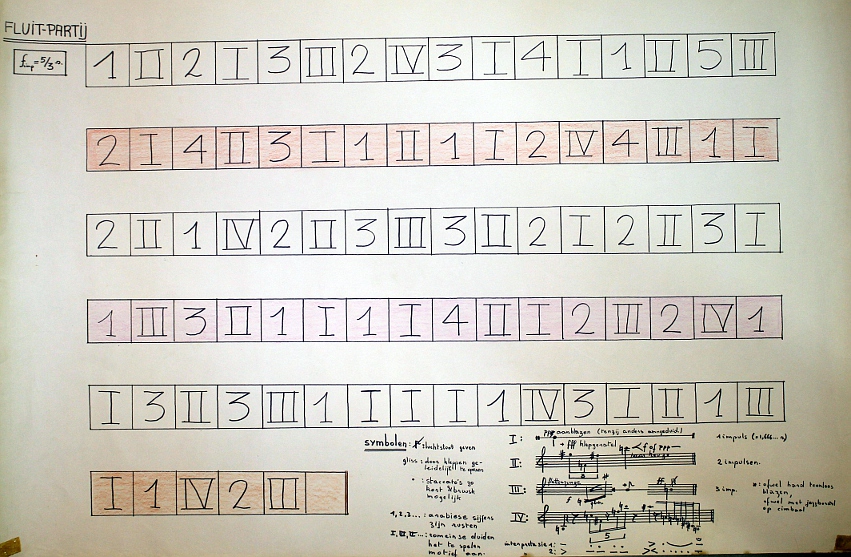 FLUIT-PARTIJ
1 II 2 I 3 III 2 IV 3 I 4 I 1 II 5 III
2 I 4 II 3 I 1 II 1 I 2 IV 4 III 1 I
2 II 1 IV 2 II 3 III 3 II 2 I 2 II 3 I
1 III 3 II 1 I 1 I 4 II I 2 III 2 IV 1
I 3 II 3 III 1 I I I 1 IV 3 I II 1 III
I 1 IV 2 III
symbolen: luchtstoot geven
gliss: door kleppen ge-
leidelijk te openen
: staccato's zo
kort &bruusk
mogelijk
1,2,3...: arabiese cijfers
zijn rusten
I,II,III...: romeinse duiden
het te spelen
motief aan.
I: ppp aanblazen (tenzij anders aangeduid) 1 impuls
+ fff
II: 2 impulsen.
III: 3 imp.
*: ofwel hand toonloos
blazen,
ofwel met
op cimbaal
IV:
5
interpretatie 1:
2: